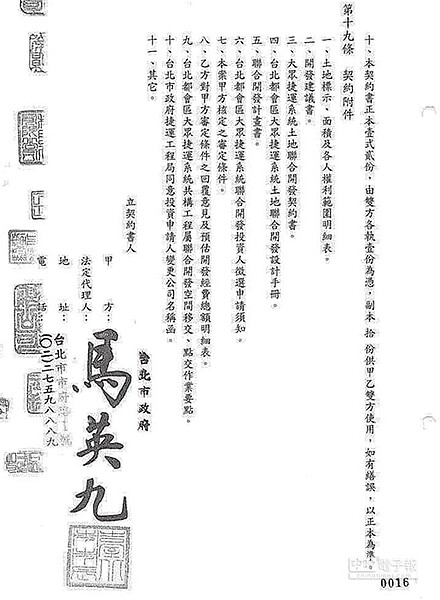 十、本契約書正本壹式貳份，由雙方各執壹份為憑，副本 拾 份供甲乙雙方使用，如有繕誤，以正本為準。
第十九條　契約附件
一、土地標示、面積及各人權利範圍明細表。
二、開發建議書。
三、大眾捷運系統土地聯合開發契約書。
四、台北都會區大眾捷運系統土地聯合開發設計手冊。
五、聯合開發計畫書。
六、台北都會區大眾捷運系統聯合開發投資人徵選申請須知。
七、本案甲方核定之審定條件。
八、乙方對甲方審定條件之回覆意見及預估開發經費總額明細表。
九、台北都會區大眾捷運系統共構工程屬聯合開發空間移交、點交作業要點。
十、台北市政府捷運工程局同意投資申請人變更公司名稱函。
十一、其它。
立契約書人
甲　方：台北市政府
法定代理人：馬英九
地　址：台北市市府路
電　話：(〇二)二七五九八八八九
中時電子報
0016